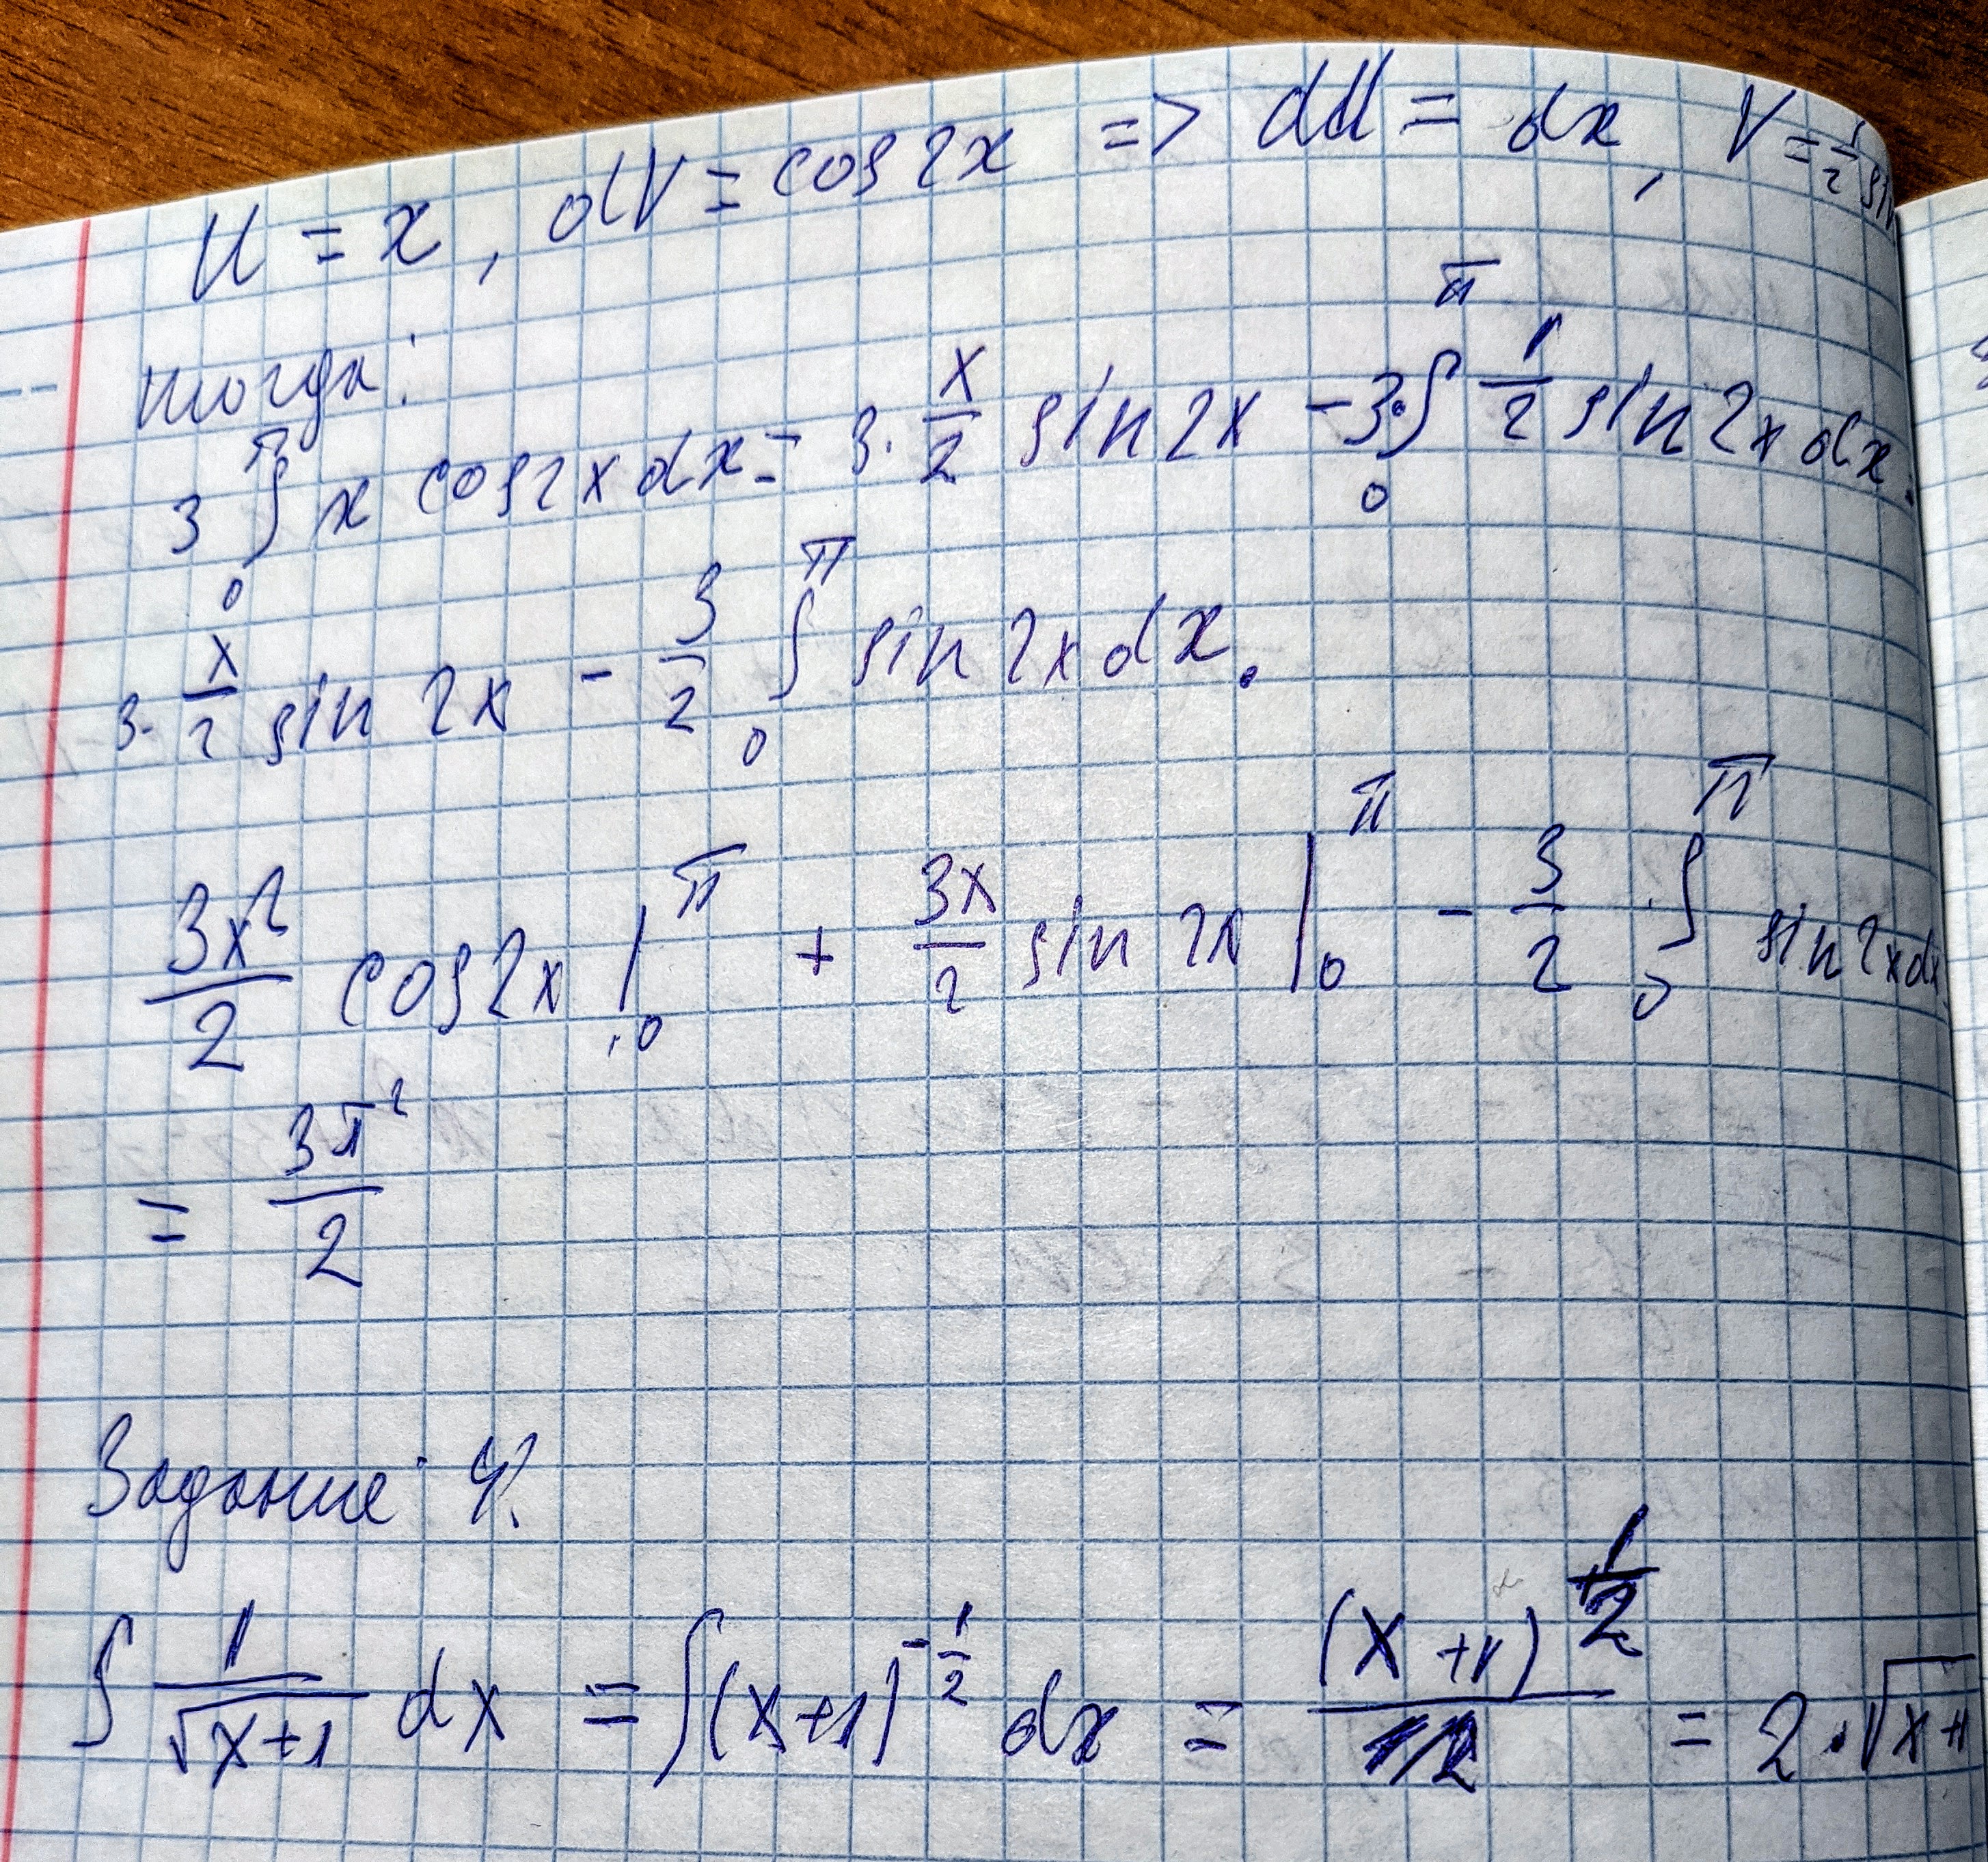 U = x, dV = cos2x => dU = dx, V = 1/2 sin
тогда:
3 ∫₀^π x cos2x dx = 3·x/2 sin2x - 3·∫₀^π 1/2 sin2x dx.
3·x/2 sin 2x - 3/2 ∫₀^π sin 2x dx.
3x²/2 cos2x |₀^π + 3x/2 sin 2x |₀^π - 3/2 ∫₀^π sin 2x dx
= 3π²/2
Задание 4.
∫ 1/√(x+1) dx = ∫(x+1)^(-1/2) dx = (x+1)^(1/2) / 1/2 = 2·√(x+1